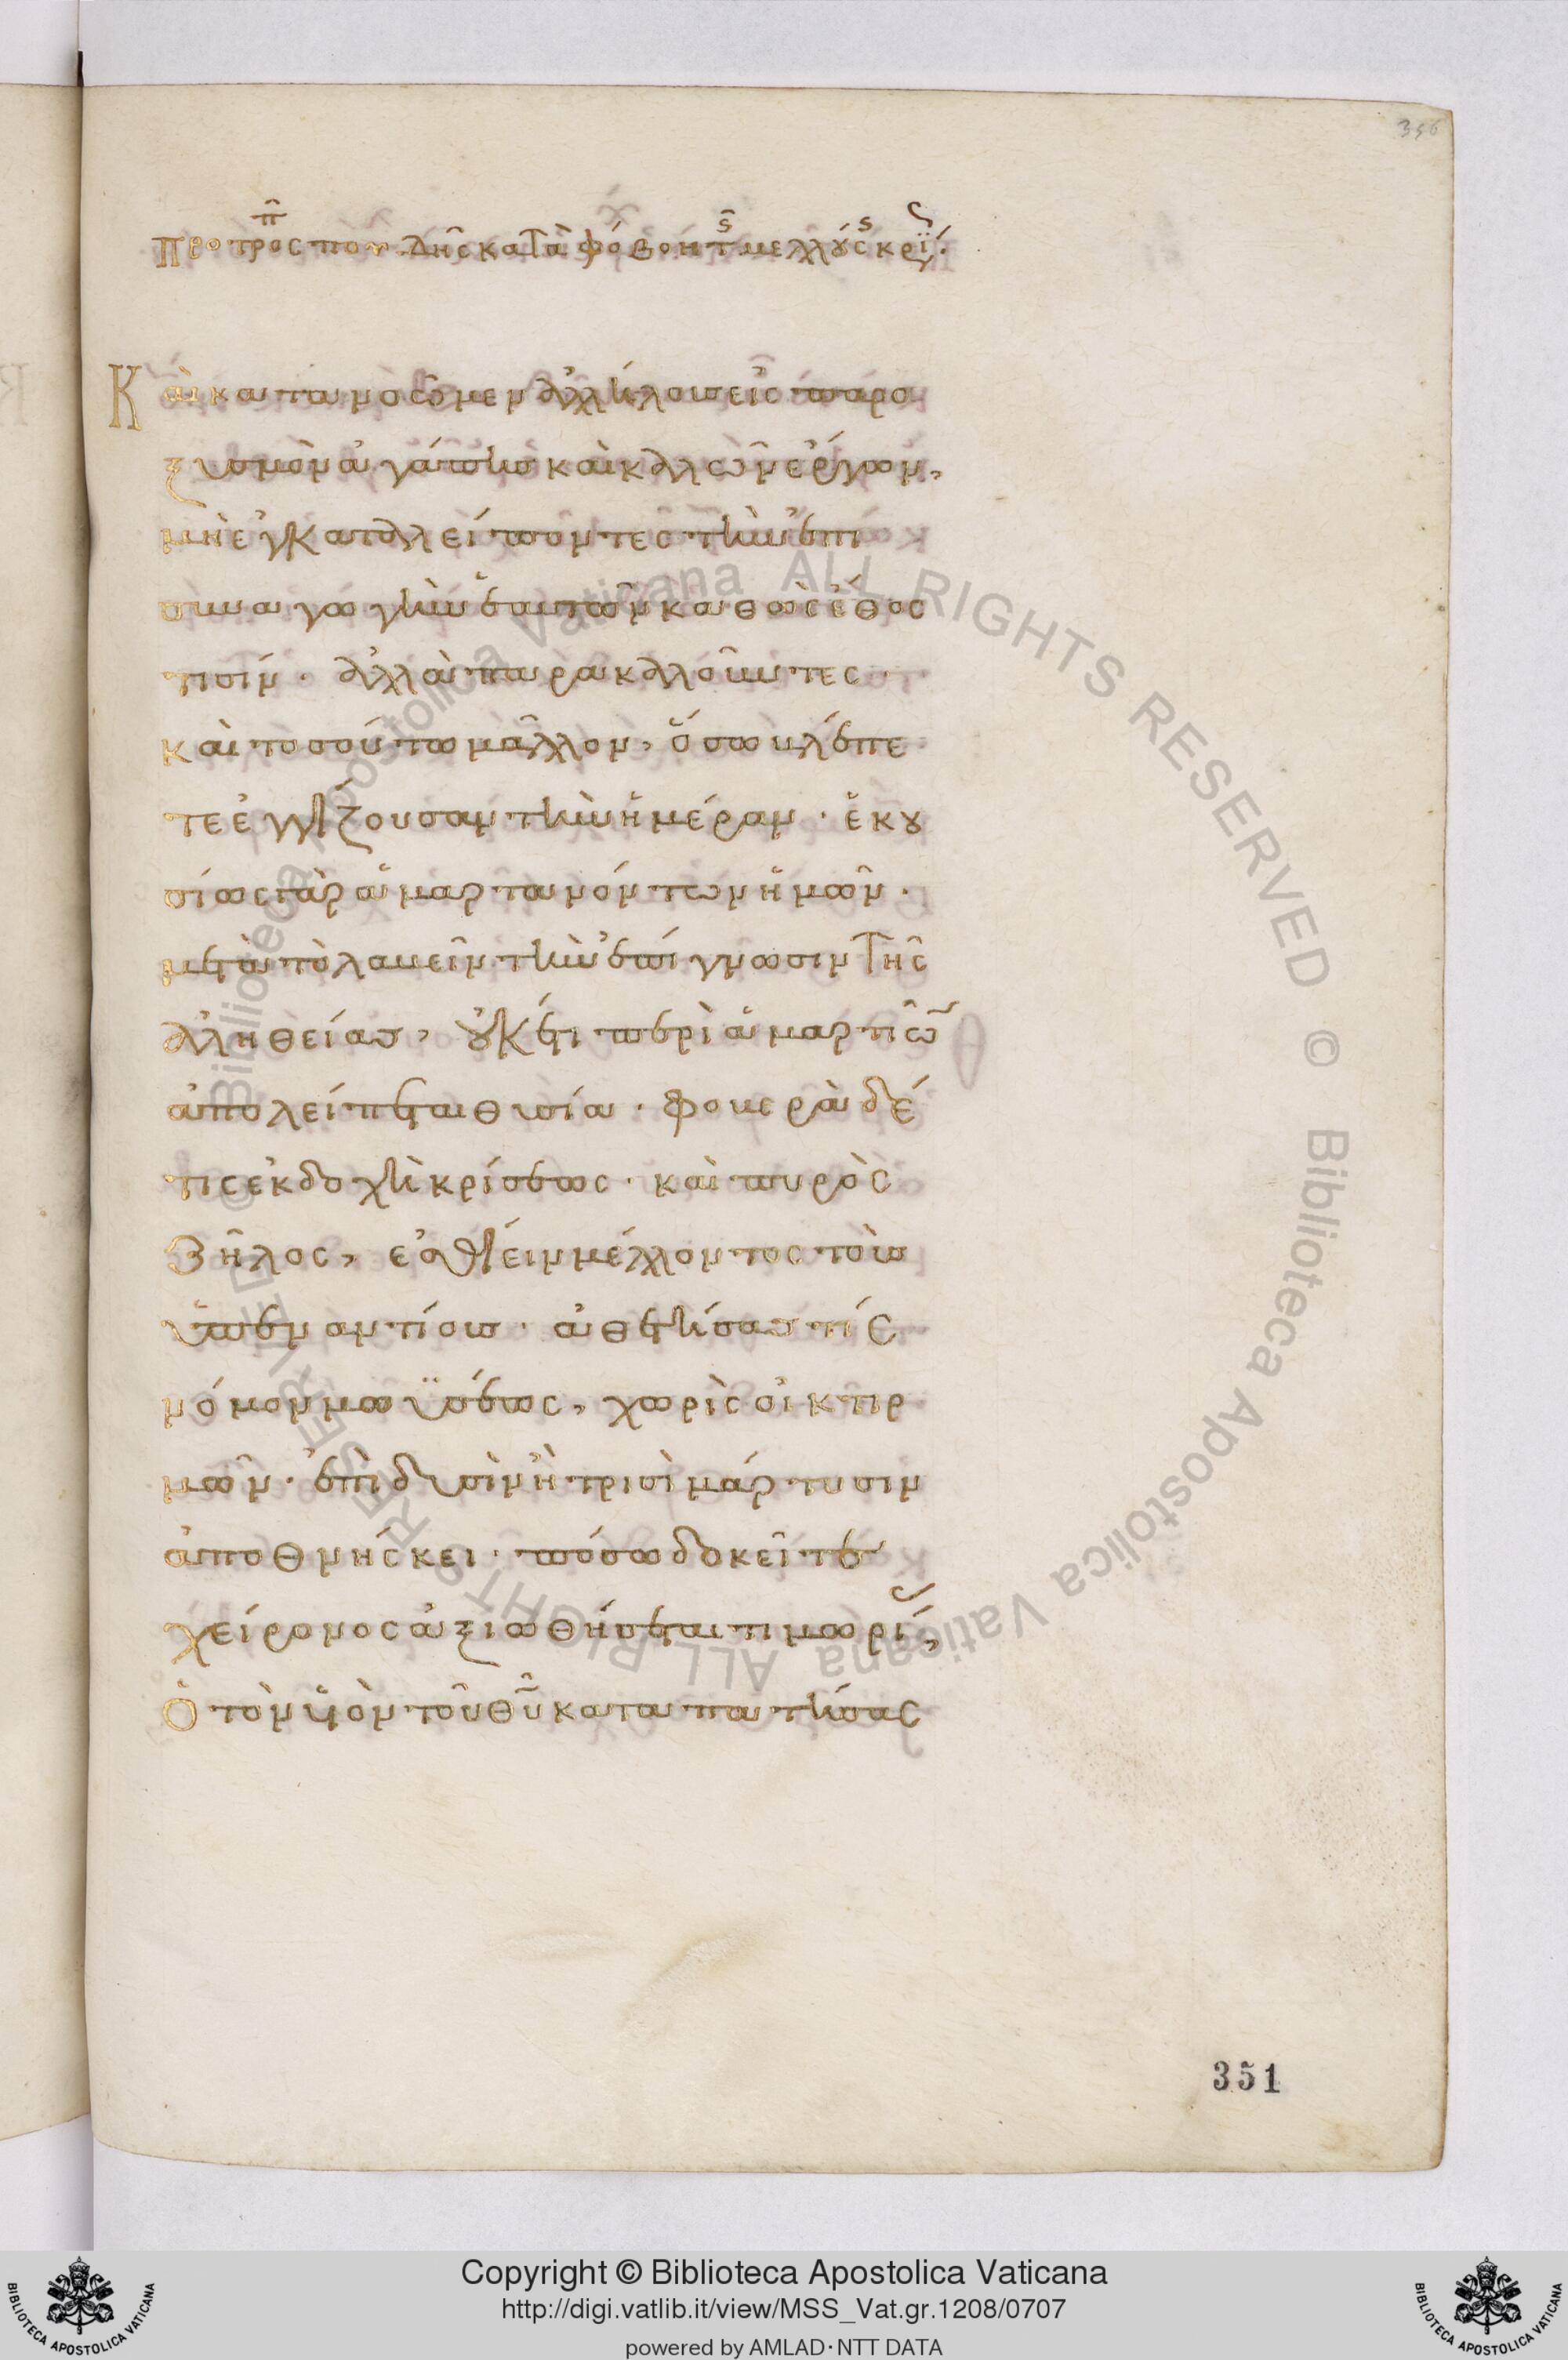 356
προτρο̑π σπουδῆς κατὰ φόβον τ͂ς μελλούς κρίς.
Καὶ κατανοῶμεν ἀλλήλοις εἰς παρο
ξυσμὸν ἀγάπης καὶ καλῶν ἔργων,
μὴ ἐγκαταλείποντες τὴν ἐπι
συναγωγὴν ἑαυτῶν καθὼς ἔθος
τισίν· ἀλλὰ παρακαλοῦντες·
καὶ τοσούτω μᾶλλον, ὅσω βλέπε
τε ἐγγίζουσαν τὴν ἡμέραν· ἑκου
σίως γὰρ ἁμαρτανόντων ἡμῶν·
μετὰ τὸ λαβεῖν τὴν ἐπίγνωσιν τῆς
ἀληθείας, οὐκέτι περὶ ἁμαρτιῶν
ἀπολείπεται θυσία· φοβερὰ δέ
τις ἐκδοχὴ κρίσεως· καὶ πυρὸς
ζῆλος, ἐσθίειν μέλλοντος τοὺς
ὑπεναντίους· ἀθετήσας τίς
νόμον μωϋσέως, χωρὶς οἰκτιρ
μῶν· ἐπὶ δυσὶν ἢ τρισὶ μάρτυσιν
ἀποθνήσκει· πόσω δοκεῖτε
χείρονος ἀξιωθήσεται τιμωρίας,
ὁ τὸν υἱὸν τοῦ θυ̅ καταπατήσας
351
Biblioteca Apostolica Vaticana ALL RIGHTS RESERVED © Biblioteca Apostolica Vaticana ALL RIGHTS RESERVED ©
Copyright © Biblioteca Apostolica Vaticana
http://digi.vatlib.it/view/MSS_Vat.gr.1208/0707
powered by AMLAD·NTT DATA
BIBLIOTECA APOSTOLICA VATICANA
BIBLIOTECA APOSTOLICA VATICANA